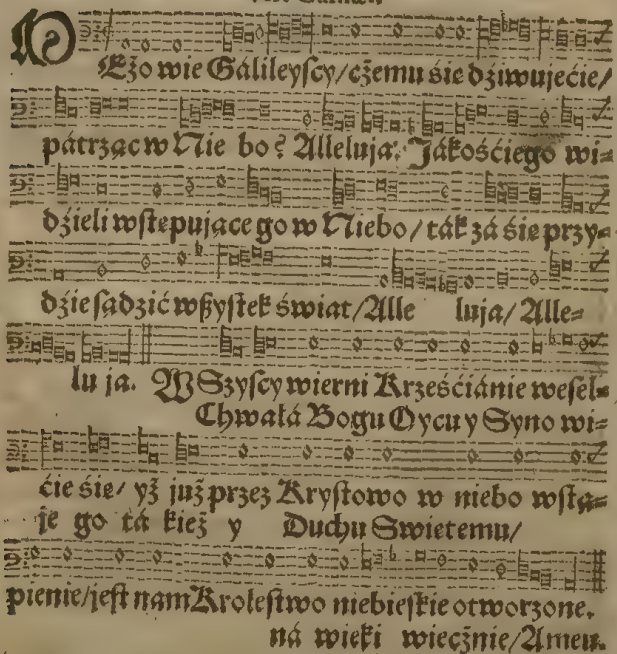 MĘżo wie Gálileyſcy/cżemu śie dżiwujećie/
pátrząc w Nie bo? Alleluja. Jákośćiego wi⸗
dżieli wſtepujące go w Niebo/ ták zá śie przy⸗
dżie ſądżić wßyſtek świat/Alle luja/ Alle⸗
lu ja. WSzyſcy wierni Krześćiánie weſel⸗
Chwałá Bogu Oycu y Syno wi⸗
ćie śie/ yż już przez Kryſtowo w niebo wſtą⸗
je go tá kież y Duchu Swietemu/
pienie/jeſt nam Kroleſtwo niebieſkie otworzone.
ná wieki wiecżnie/Amen.